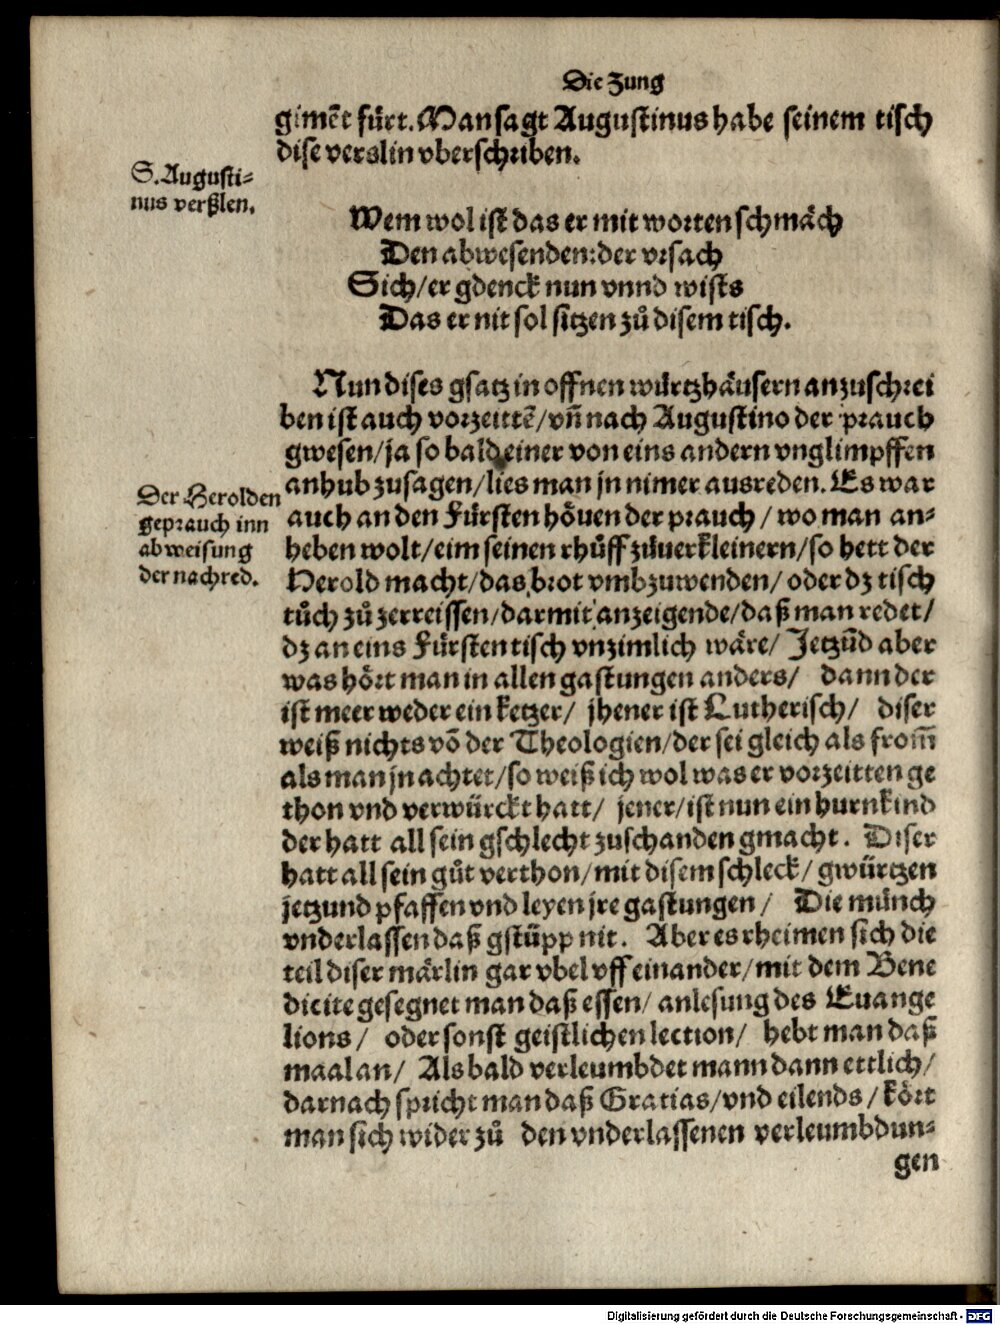 Die Zung
gimẽt fůrt. Man sagt Augustinus habe seinem tisch
dise verslin vberschriben.
S. Augusti-
nus verßlen.
Wem wol ist das er mit worten schmäch
Den abwesenden: der vrsach
Sich/ er gdenck nun vnnd wists
Das er nit sol sitzen zů disem tisch.
Nun dises gsatz in offnen würtzhäusern anzuschrei
ben ist auch vorzeittẽ/ vñ nach Augustino der prauch
gwesen/ ja so bald einer von eins andern vnglimpffen
anhub zusagen/ lies man jn nimer ausreden. Es war
auch an den Fürsten höuen der prauch/ wo man an-
heben wolt/ eim seinen rhůff zůuerkleinern/ so hett der
Herold macht/ das brot vmbzuwenden/ oder dz tisch
tůch zů zerreissen/ darmit anzeigende/ daß man redet/
dz an eins Fürsten tisch vnzimlich wäre/ Jetzũd aber
was hört man in allen gastungen anders/ dann der
ist meer weder ein ketzer/ jhener ist Lutherisch/ diser
weiß nichts võ der Theologien/ der sei gleich als from̃
als man jn achtet/ so weiß ich wol was er vorzeitten ge
thon vnd verwürckt hatt/ jener/ ist nun ein hurnkind
der hatt all sein gschlecht zuschanden gmacht. Diser
hatt all sein gůt verthon/ mit disem schleck/ gwürtzen
jetzund pfaffen vnd leyen jre gastungen/ Die münch
vnderlassen daß gstüpp nit. Aber es rheimen sich die
teil diser märlin gar vbel vff einander/ mit dem Bene
dicite gesegnet man daß essen/ anlesung des Euange
lions/ oder sonst geistlichen lection/ hebt man daß
maal an/ Als bald verleumbdet mann dann ettlich/
darnach spricht man daß Gratias/ vnd eilends/ kört
man sich wider zů den vnderlassenen verleumbdun-
gen
Der Herolden
geprauch inn
abweisung
der nachred.
Digitalisierung gefördert durch die Deutsche Forschungsgemeinschaft - DFG